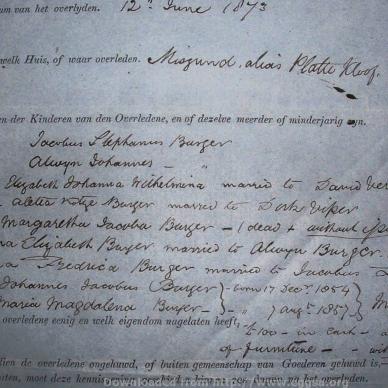 um van het overlyden. 12th June 1873
welk Huis, of waar overleden. Misgund, alias Platte Kloof.
en der Kinderen van den Overledene, en of dezelve meerder of minderjarig zyn.
Jacobus Stephanus Burger
Alwyn Johannes — "
Elizabeth Johanna Wilhelmina married to David
Aletta Burger married to Dirk
Margaretha Jacoba Burger — (dead + without
a Elizabeth Burger married to Alwyn Burger
a Fredrica Burger married to Jacobus
Johannes Jacobus Burger } - born 17 Decr. 1854
Maria Magdalena Burger - } " augt. 1857
overledene eenig en welk eigendom nagelaten heeft,
£100 – in cash –
of furniture –
dien de overledene ongehuwd, of buiten gemeenschap van Goederen gehuwd is,
uiten, moet deze kennis
Downloaded from